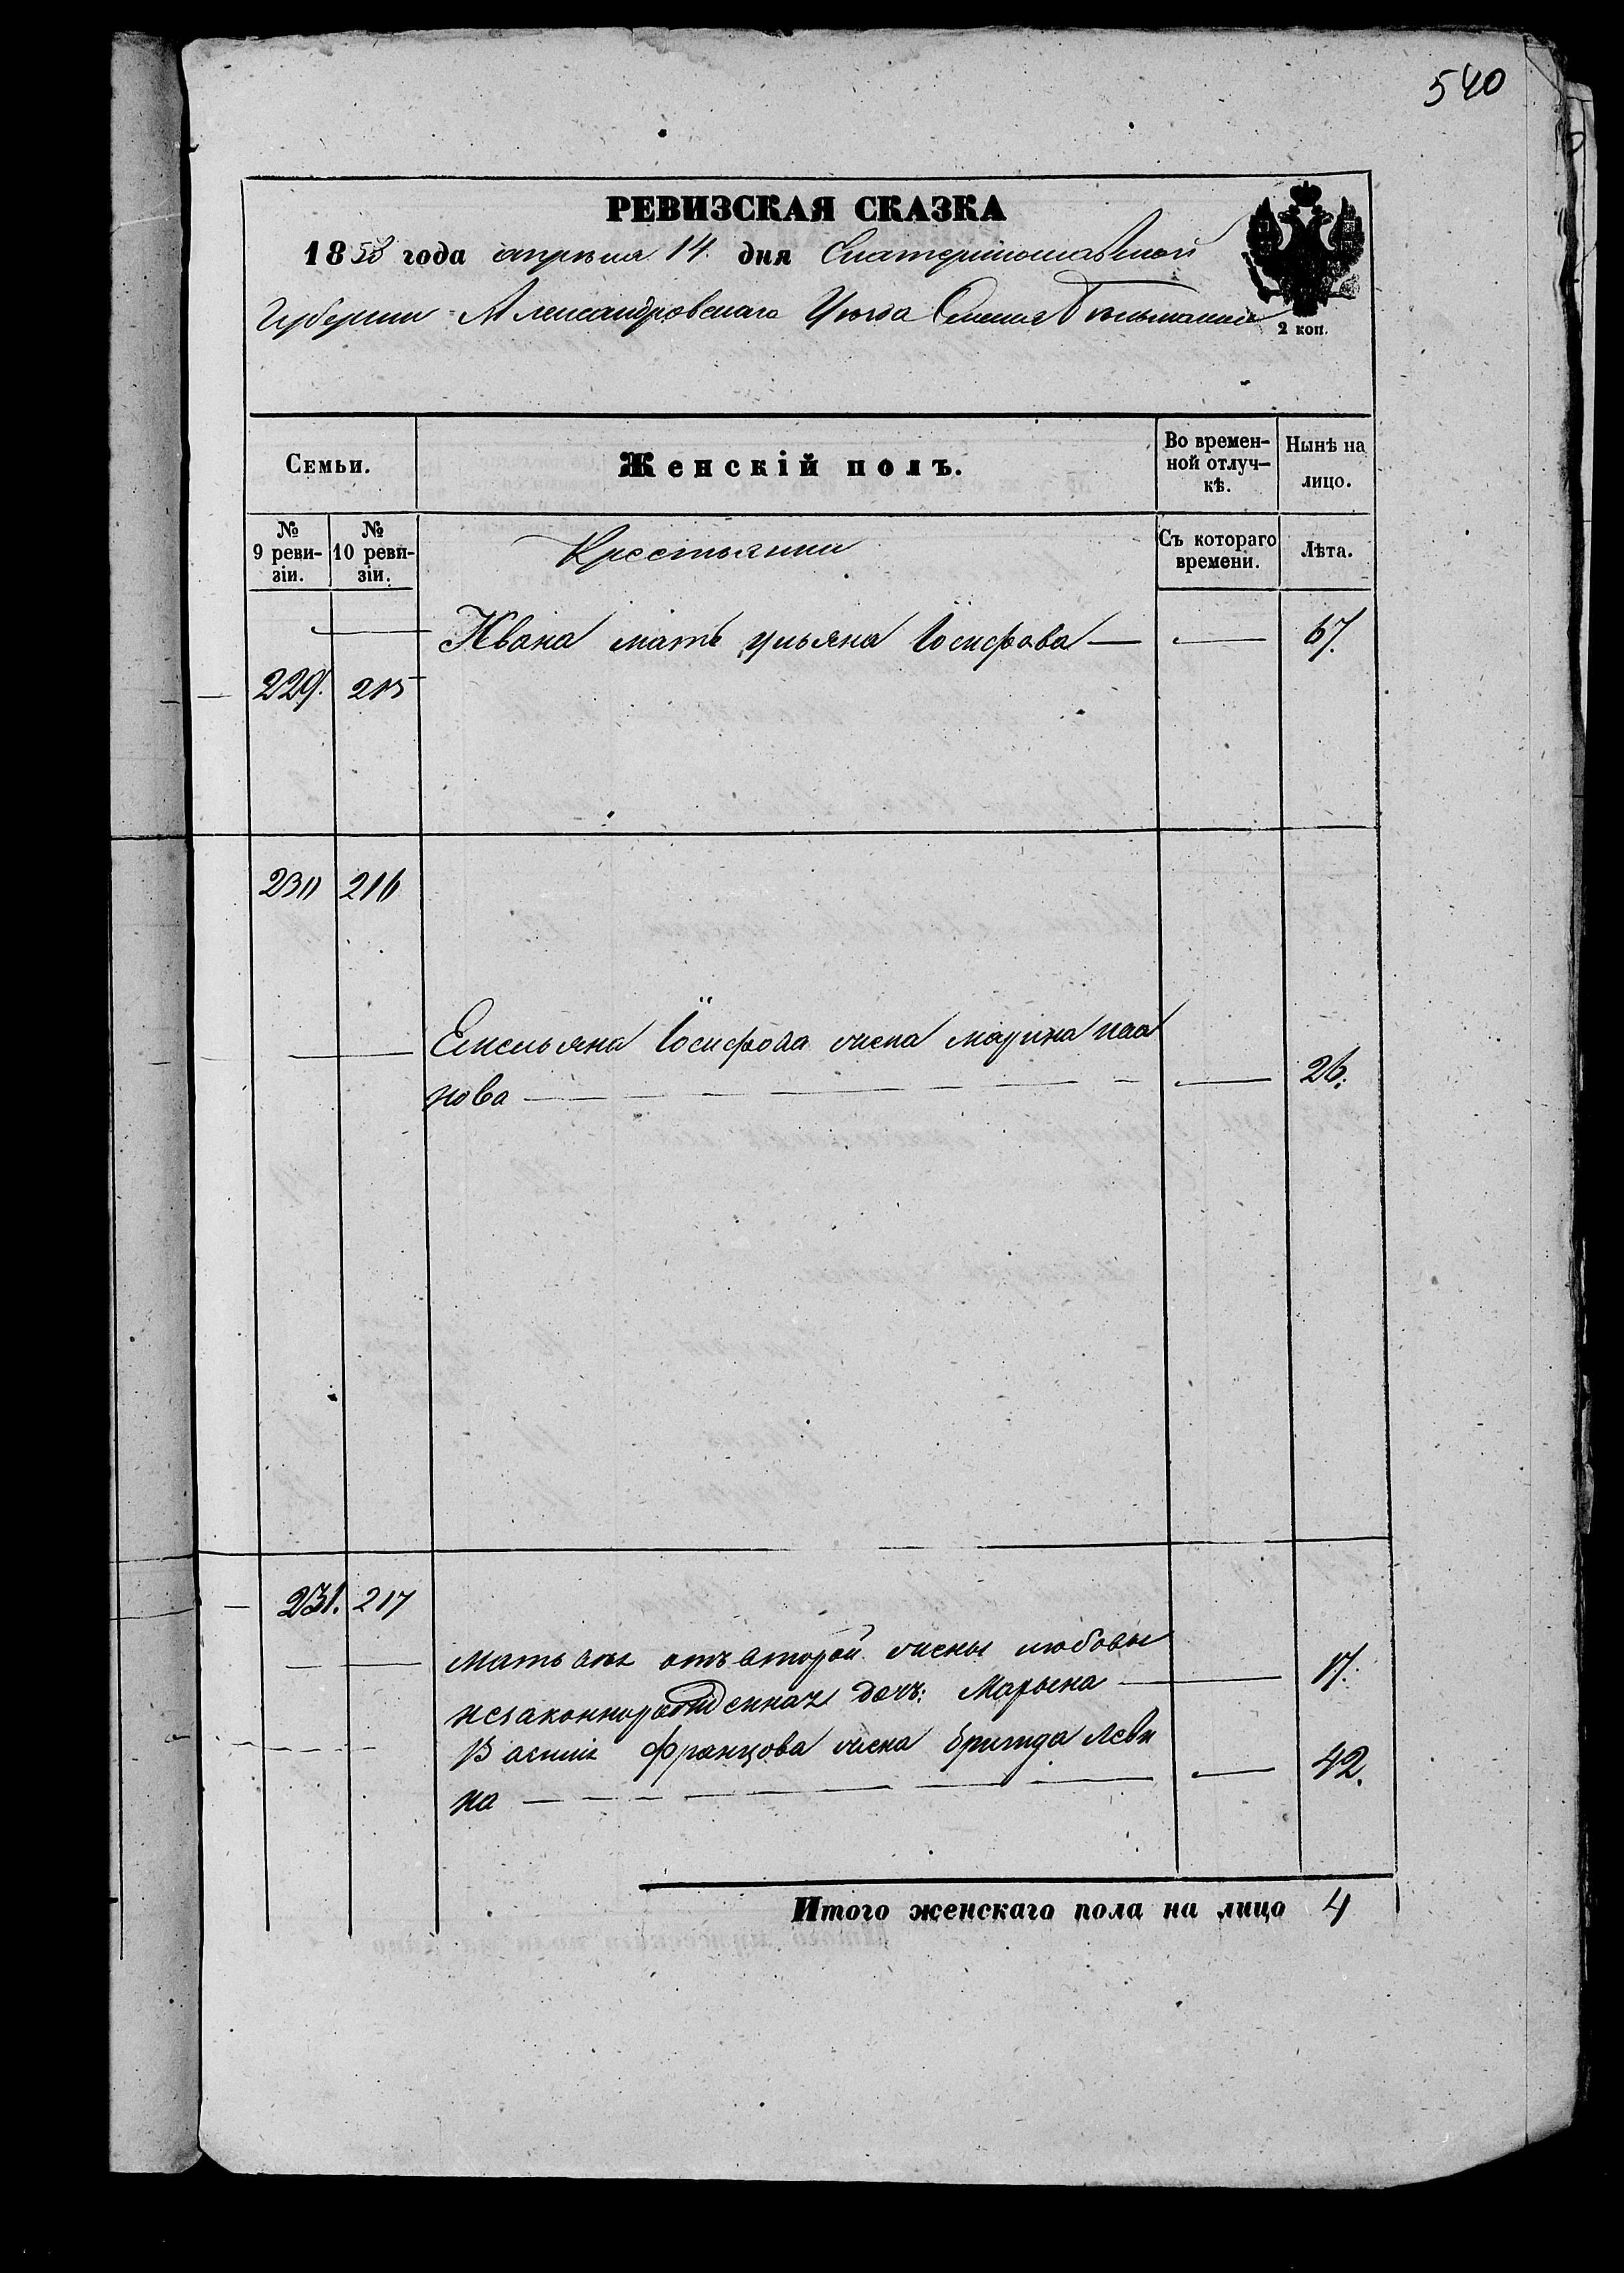 540
РЕВИЗСКАЯ СКАЗКА
1858 года апреля 14 дня Екатеринославской
Губернии Александровскаго Уезда Селения
2 коп.
Семьи.
Женскій полъ.
Во времен-
ной отлуч-
кѣ.
Нынѣ на
лицо.
№
9 реви-
зіи.
№
10 реви-
зіи.
Крестьянки
Съ котораго
времени.
Лѣта.
Ивана мать ульяна Іосифова — — 67.
229. 215
230 216
Емельяна Іосифова жена марина ива
нова — — 26.
231. 217
мать отъ второй жены любовы
незаконнорожденная дочь: Марьяна — 17.
Васили Францова жена бригида леви
на — — 42.
Итого женскаго пола на лицо 4